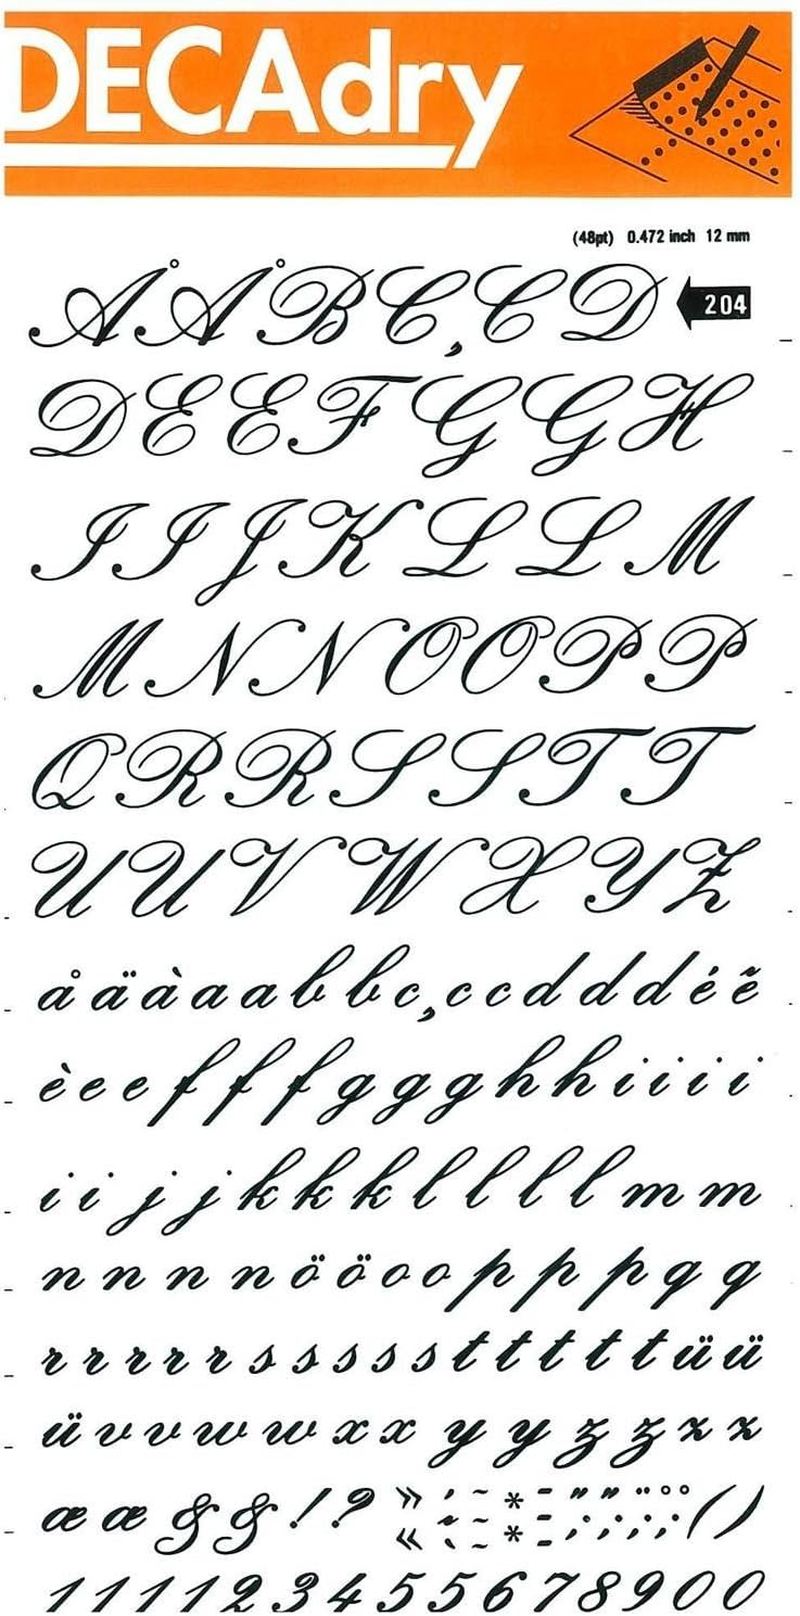 DECAdry
(48pt) 0.472 inch 12 mm
Å Å B Ç C D 204
D E E F G G H
I I J K L L M
M N N O O P P
Q R R S S T T
U U V W X Y Z
å ä à a a b b ç c c d d d é ẽ
è e e f f f g g g h h i i i i
i i j j k k k l l l l m m
n n n n ö ö o o p p p q q
r r r r r s s s s s t t t t t ü ü
ü v v w w x x y y z z z z
æ æ & & ! ? » « * * ( )
1 1 1 1 2 3 4 5 5 6 7 8 9 0 0